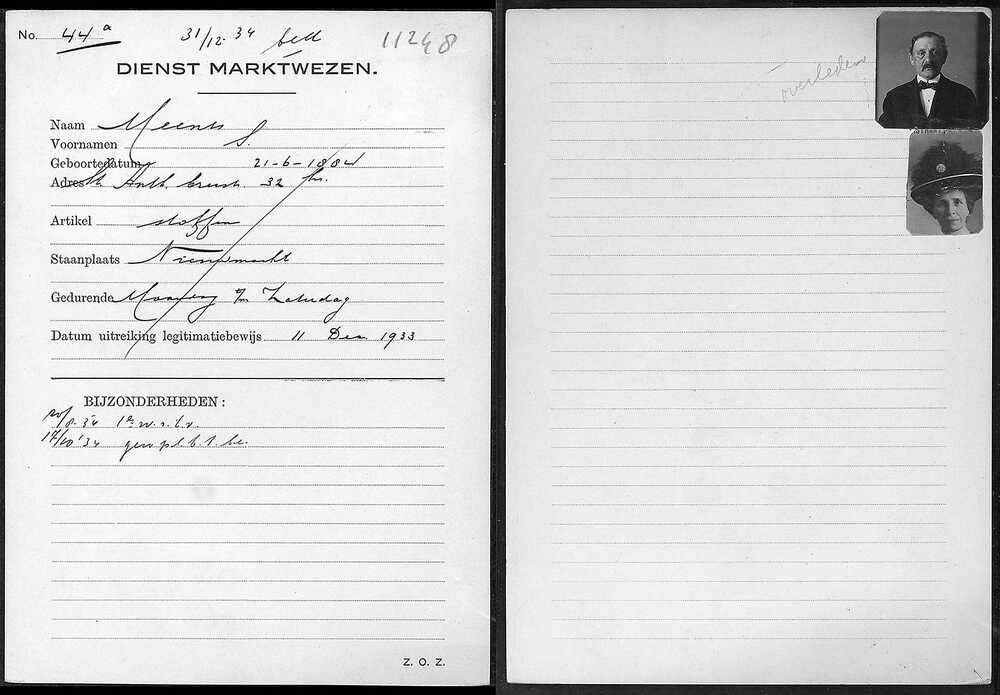 No. 44 a 31/12-34 11248
DIENST MARKTWEZEN.
Naam Meents
Voornamen S.
Geboortedatum 21-6-1884
Adres St. Anth. breestr. 32 hs.
Artikel stoffen
Staanplaats Nieuwmarkt
Gedurende Maandag t/m Zaterdag
Datum uitreiking legitimatiebewijs 11 Dec. 1933
BIJZONDERHEDEN:
20/8.34 1e w.s.l.v.
17/10 '34
Z. O. Z.
overleden